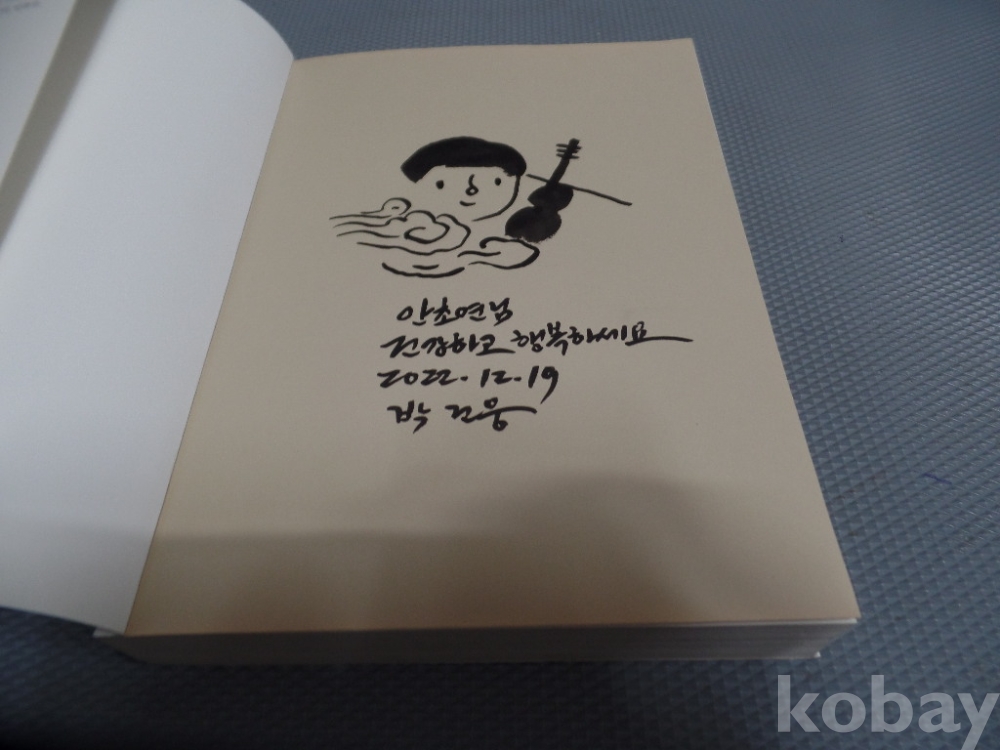 안초연님
건강하고 행복하세요
2022.12.19
박 건웅
kobay